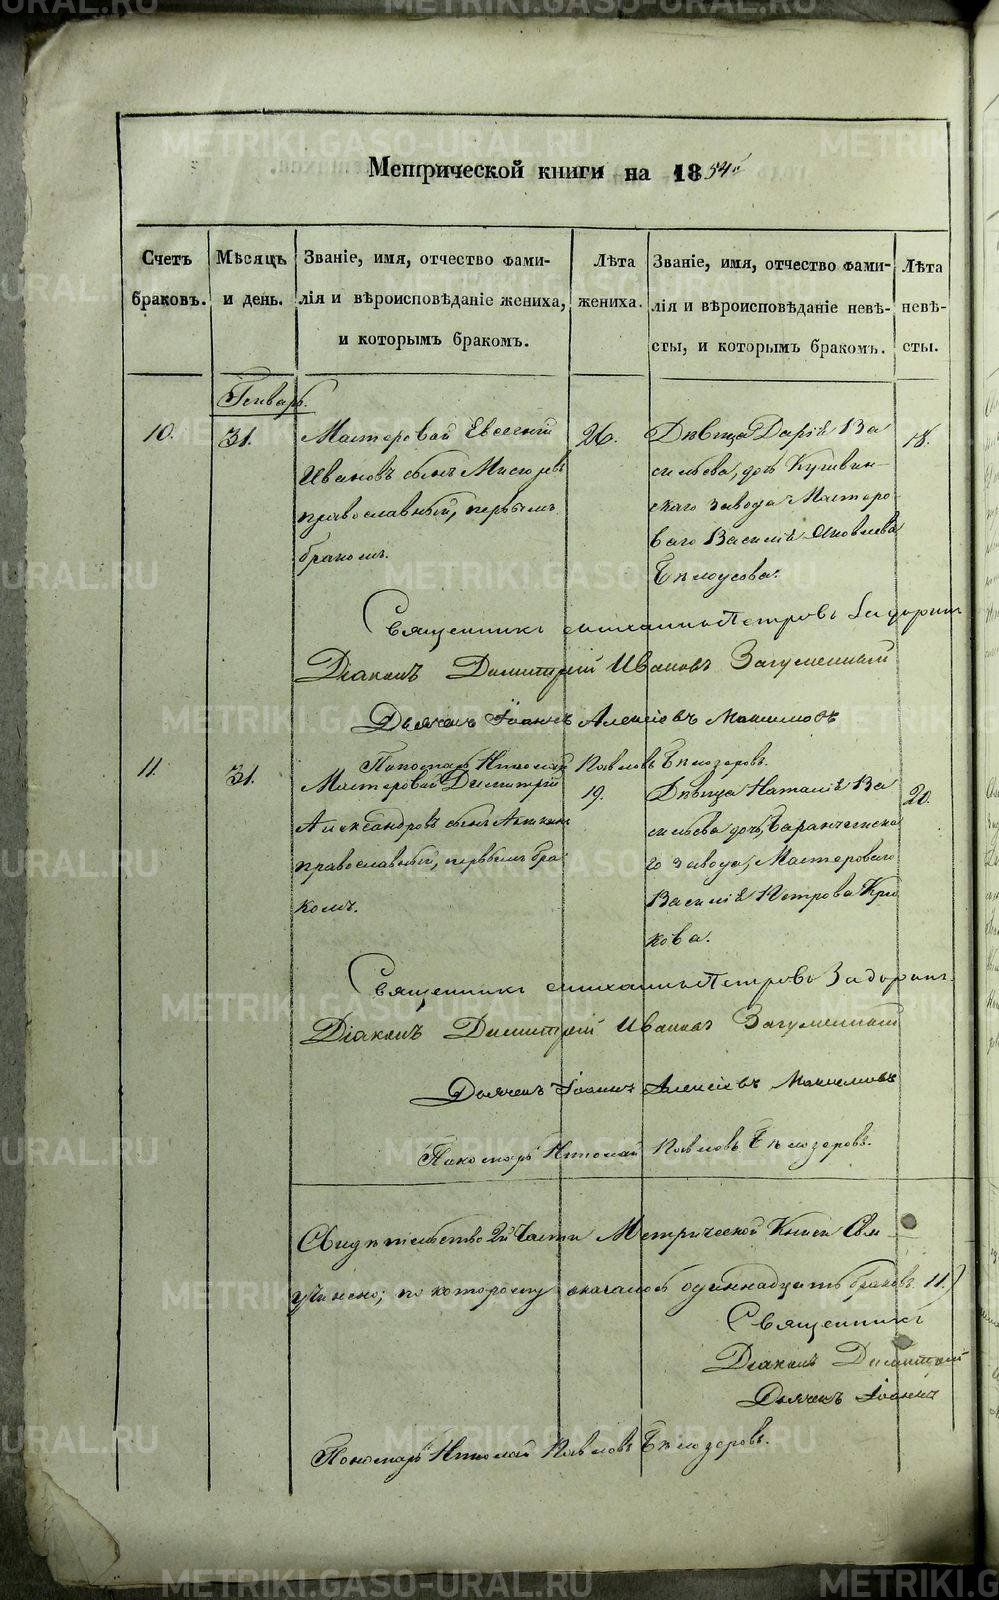 Метрической книги на 1854й
Счетъ браковъ.
Мѣсяцъ и день.
Званіе, имя, отчество фами-
лія и вѣроисповѣданіе жениха,
и которымъ бракомъ.
Лѣта
жениха.
Званіе, имя, отчество фами-
лія и вѣроисповѣданіе невѣ-
сты, и которымъ бракомъ.
Лѣта
невѣ-
сты.
Генварь.
10.
31.
Мастеровой Евсегній
Ивановъ сынъ
православный, первымъ
бракомъ.
26.
Дѣвица Дарія Ва
сильева, дочь Кушвин-
скаго завода Мастеро-
ваго Василія Яковлева
Бѣлоусова.
18.
Священникъ Петровъ
Діаконъ Димитрій Ивановъ Загуменный
Дьячекъ Іоаннъ Алексіевъ Максимовъ
Пономарь Николай Павловъ Бѣлозеровъ.
11.
31.
Мастеровой Димитрій
Александровъ сынъ
православный, первымъ бра
комъ.
19.
Дѣвица Наталія Ва
сильева дочь, Баранчинска
го завода, Мастероваго
Василія Петрова Крю
кова.
20.
Священникъ Петровъ Задоринъ
Діаконъ Димитрій Ивановъ Загуменный
Дьячекъ Іоаннъ Алексіевъ Максимовъ
Пономарь Николай Павловъ Бѣлозеровъ.
Свидѣтельство 2й Части Метрической Книги
учинено; по которому оказалось одиннадцать браковъ 11.)
Священникъ
Діаконъ Димитрій
Дьячекъ Іоаннъ
Пономарь Николай Павловъ Бѣлозеровъ.
METRIKI.GASO-URAL.RU